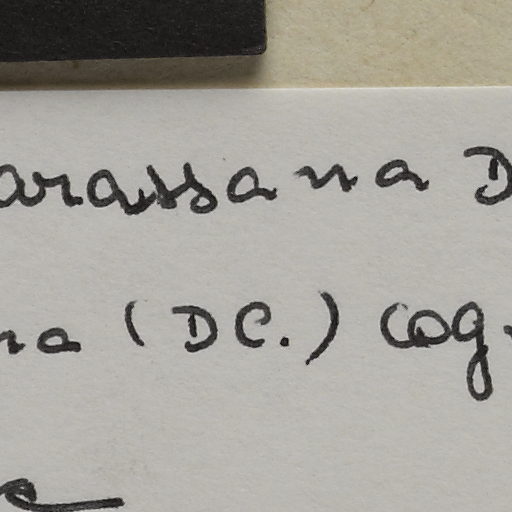 arassana D
na (DC.) Cog.